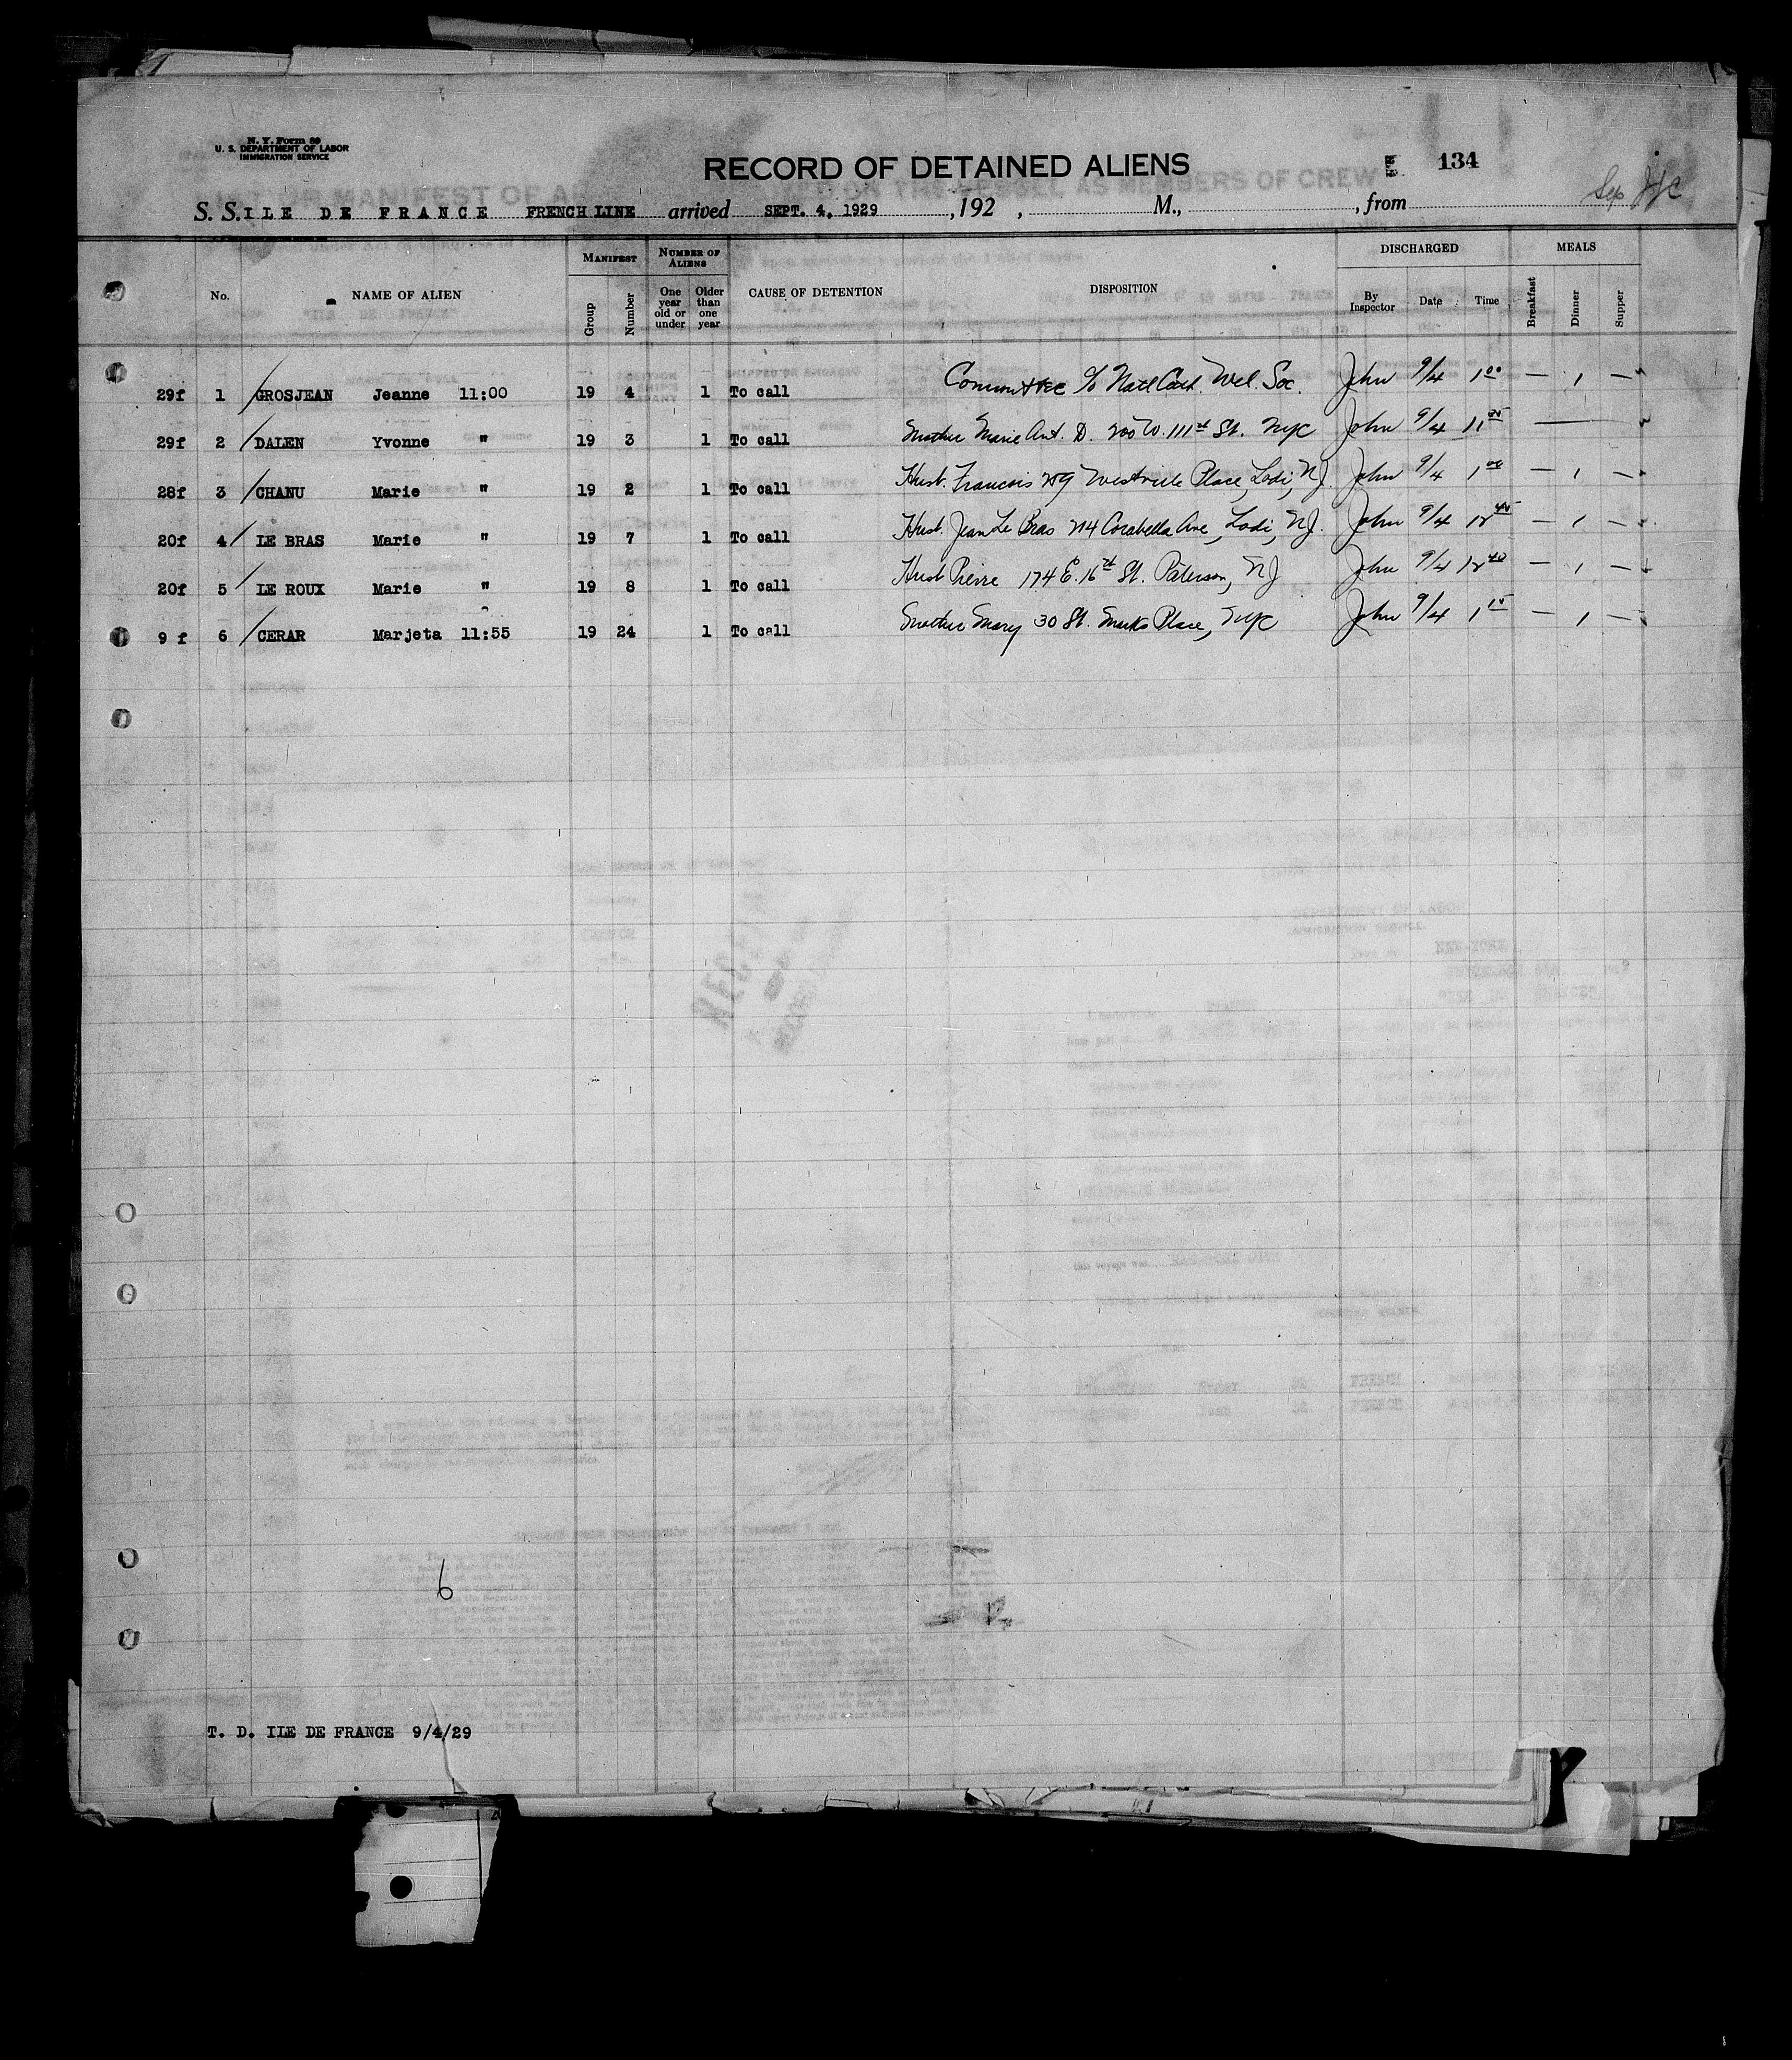 N. Y. Form 89
U. S. DEPARTMENT OF LABOR
IMMIGRATION SERVICE
RECORD OF DETAINED ALIENS
134
S. S. ILE DE FRANCE FRENCH LINE arrived SEPT. 4, 1929 , 192 , M., , from
No. NAME OF ALIEN MANIFEST Group Number NUMBER OF ALIENS One year old or under Older than one year CAUSE OF DETENTION DISPOSITION DISCHARGED By Inspector Date Time MEALS Breakfast Dinner Supper
29f 1 GROSJEAN Jeanne 11:00 19 4 1 To call Committee c/o Natl Cath. Wel. Soc. John 9/4 1 00 — 1 —
29f 2 DALEN Yvonne " 19 3 1 To call Mother Marie Ant. D. 200 W. 111th St. NYC John 9/4 11 ———
28f 3 CHANU Marie " 19 2 1 To call Husb. Francois Place, Lodi, NJ. John 9/4 1 00 — 1 —
20f 4 LE BRAS Marie " 19 7 1 To call Husb. Jean Le Bras 214 Corabella Ave, Lodi, NJ. John 9/4 12 40 — 1 —
20f 5 LE ROUX Marie " 19 8 1 To call Husb Pierre 174 E. 16th St. Paterson, NJ John 9/4 12 40 — 1 —
9 f 6 CERAR Marjeta 11:55 19 24 1 To call Mother Mary 30 St. Marks Place, NYC John 9/4 1 15 — 1 —
6
T. D. ILE DE FRANCE 9/4/29